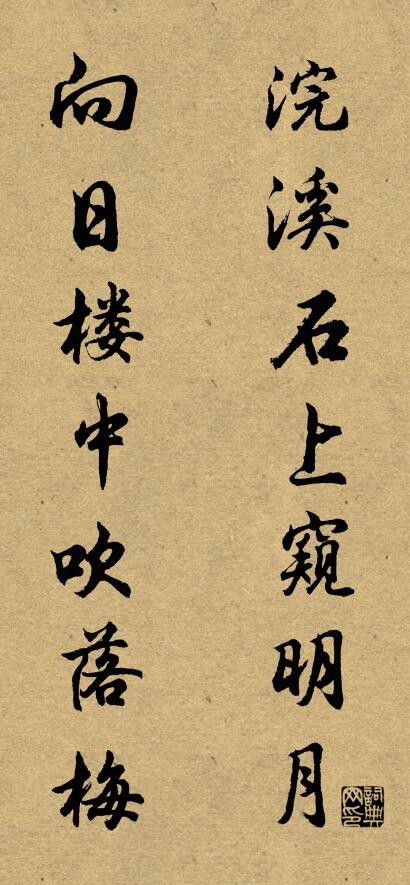 浣溪石上窥明月
向日楼中吹落梅
词典网印